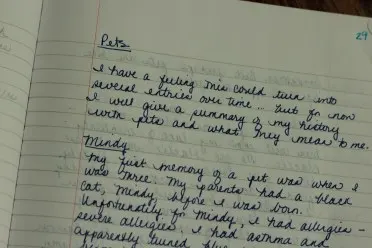 29
Pets
I have a feeling this could turn into
several entries over time... but for now
I will give a summary of my history
with pets and what they mean to me.
Mindy
My first memory of a pet was when I
was three. My parents had a black
cat, Mindy, before I was born.
Unfortunately for Mindy, I had allergies -
severe allergies. I had asthma and
apparently turned blue